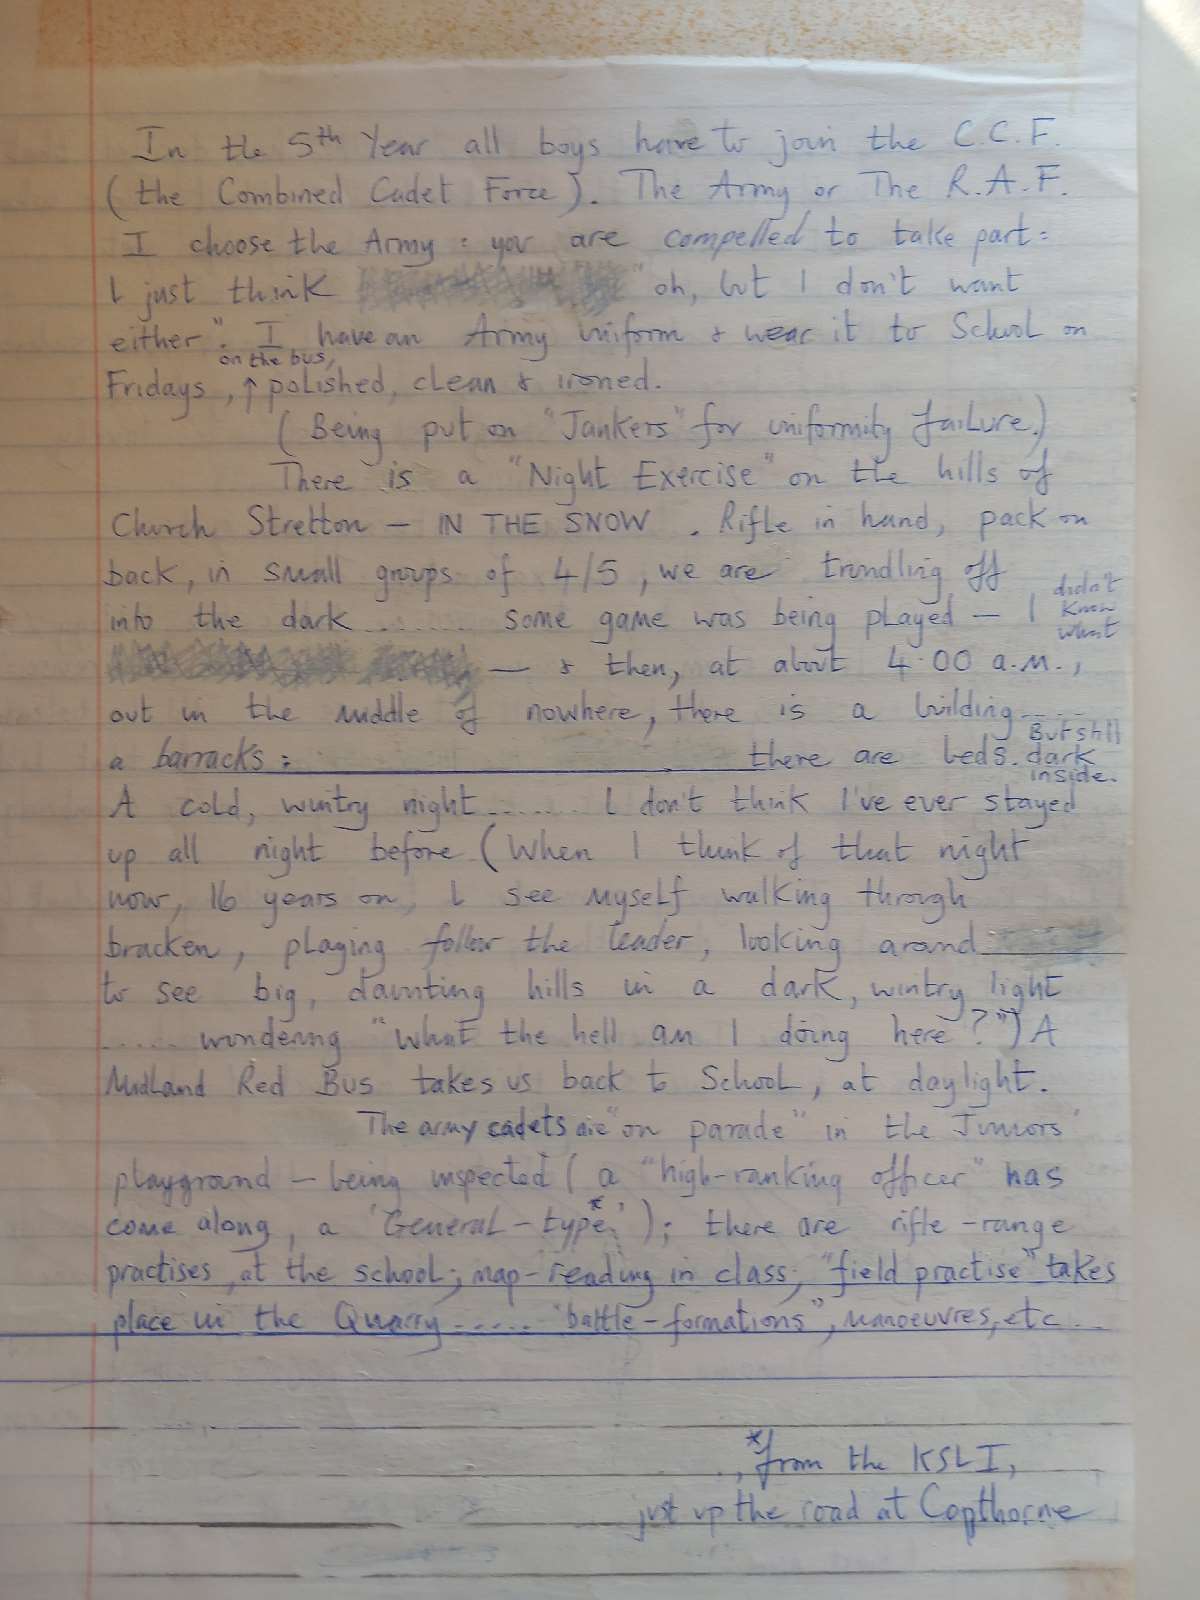 In the 5th Year all boys have to join the C.C.F.
(the Combined Cadet Force). The Army or The R.A.F.
I choose the Army : you are compelled to take part:
I just think "oh, but I don't want
either". I have an Army uniform & wear it to School on
on the bus,
Fridays, ↑ polished, clean & ironed.
(Being put on "Jankers" for uniformity failure.)
There is a "Night Exercise" on the hills of
Church Stretton – IN THE SNOW. Rifle in hand, pack on
back, in small groups of 4/5, we are trundling off
into the dark ........ some game was being played – I didn't know what
– & then, at about 4.00 a.m.,
out in the middle of nowhere, there is a building.....
a barracks : there are beds. But still dark inside.
A cold, wintry night...... I don't think I've ever stayed
up all night before (When I think of that night
now, 16 years on, I see myself walking through
bracken, playing follow the leader, looking around
to see big, daunting hills in a dark, wintry light
..... wondering "What the hell am I doing here?") A
Midland Red Bus takes us back to School, at daylight.
The army cadets are "on parade" in the Juniors'
playground – being inspected (a "high-ranking officer" has
come along, a 'General-type*'); there are rifle-range
practises, at the school; map-reading in class; "field practise" takes
place in the Quarry...... "battle-formations", manoeuvres, etc...
*from the KSLI,
just up the road at Copthorne